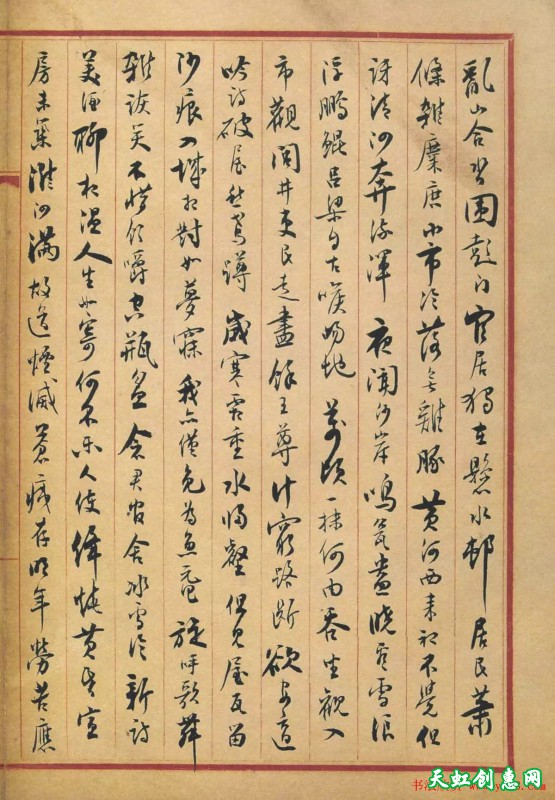 亂山合沓圍彭門官居獨在懸水邨居民蕭
條雜麋鹿小市冷落無雞豚黃河西來初不覺但
訝清泗奔流渾夜聞沙岸鳴瓮盎曉看雪浪
浮鵬鯤呂梁自古喉吻地萬頃一抹何由吞坐觀入
市觀閭井吏民走盡餘王尊計窮路斷欲安適
吟詩破屋愁鳶蹲歲寒霜重水歸壑但見屋瓦留
沙痕入城相對如夢寐我亦僅免為魚黿旋呼歌舞
雜詼笑不惜飲嚼空瓶盆念君官舍冰雪冷新詩
美酒聊相溫人生如寄何不樂任使絳燒黃昏宣
房未築淮泗滿故道煙滅瘡痍存明年勞苦應
天虹创惠网